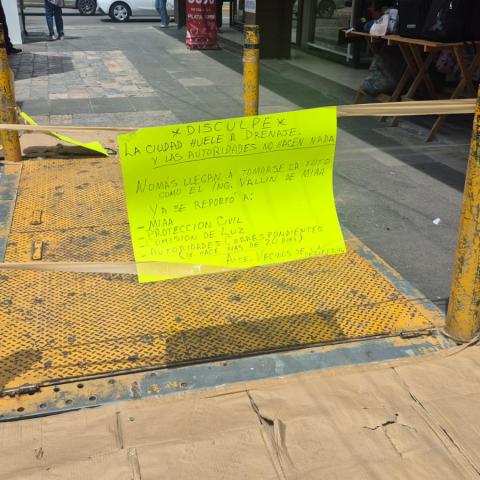 PLATA
*DISCULPE*
LA CIUDAD HUELE A DRENAJE.
Y LAS AUTORIDADES NO HACEN NADA
NOMÁS LLEGAN A TOMARSE LA FOTO
COMO EL ING. VALLIN DE MIAA
YA SE REPORTÓ A:
- MIAA
- PROTECCION CIVIL
- COMISION DE LUZ
- AUTORIDADES CORRESPONDIENTES
(DE HACE MAS DE 20 DIAS)
ATTE. VECINOS DE LA